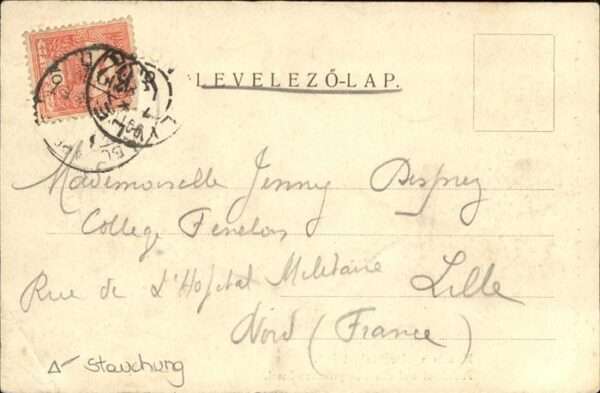 LEVELEZŐ-LAP.
Mademoiselle Jenny Desprez
College Fenelon
Rue de L'Hopital Militaire Lille
Nord (France)
Stauchung